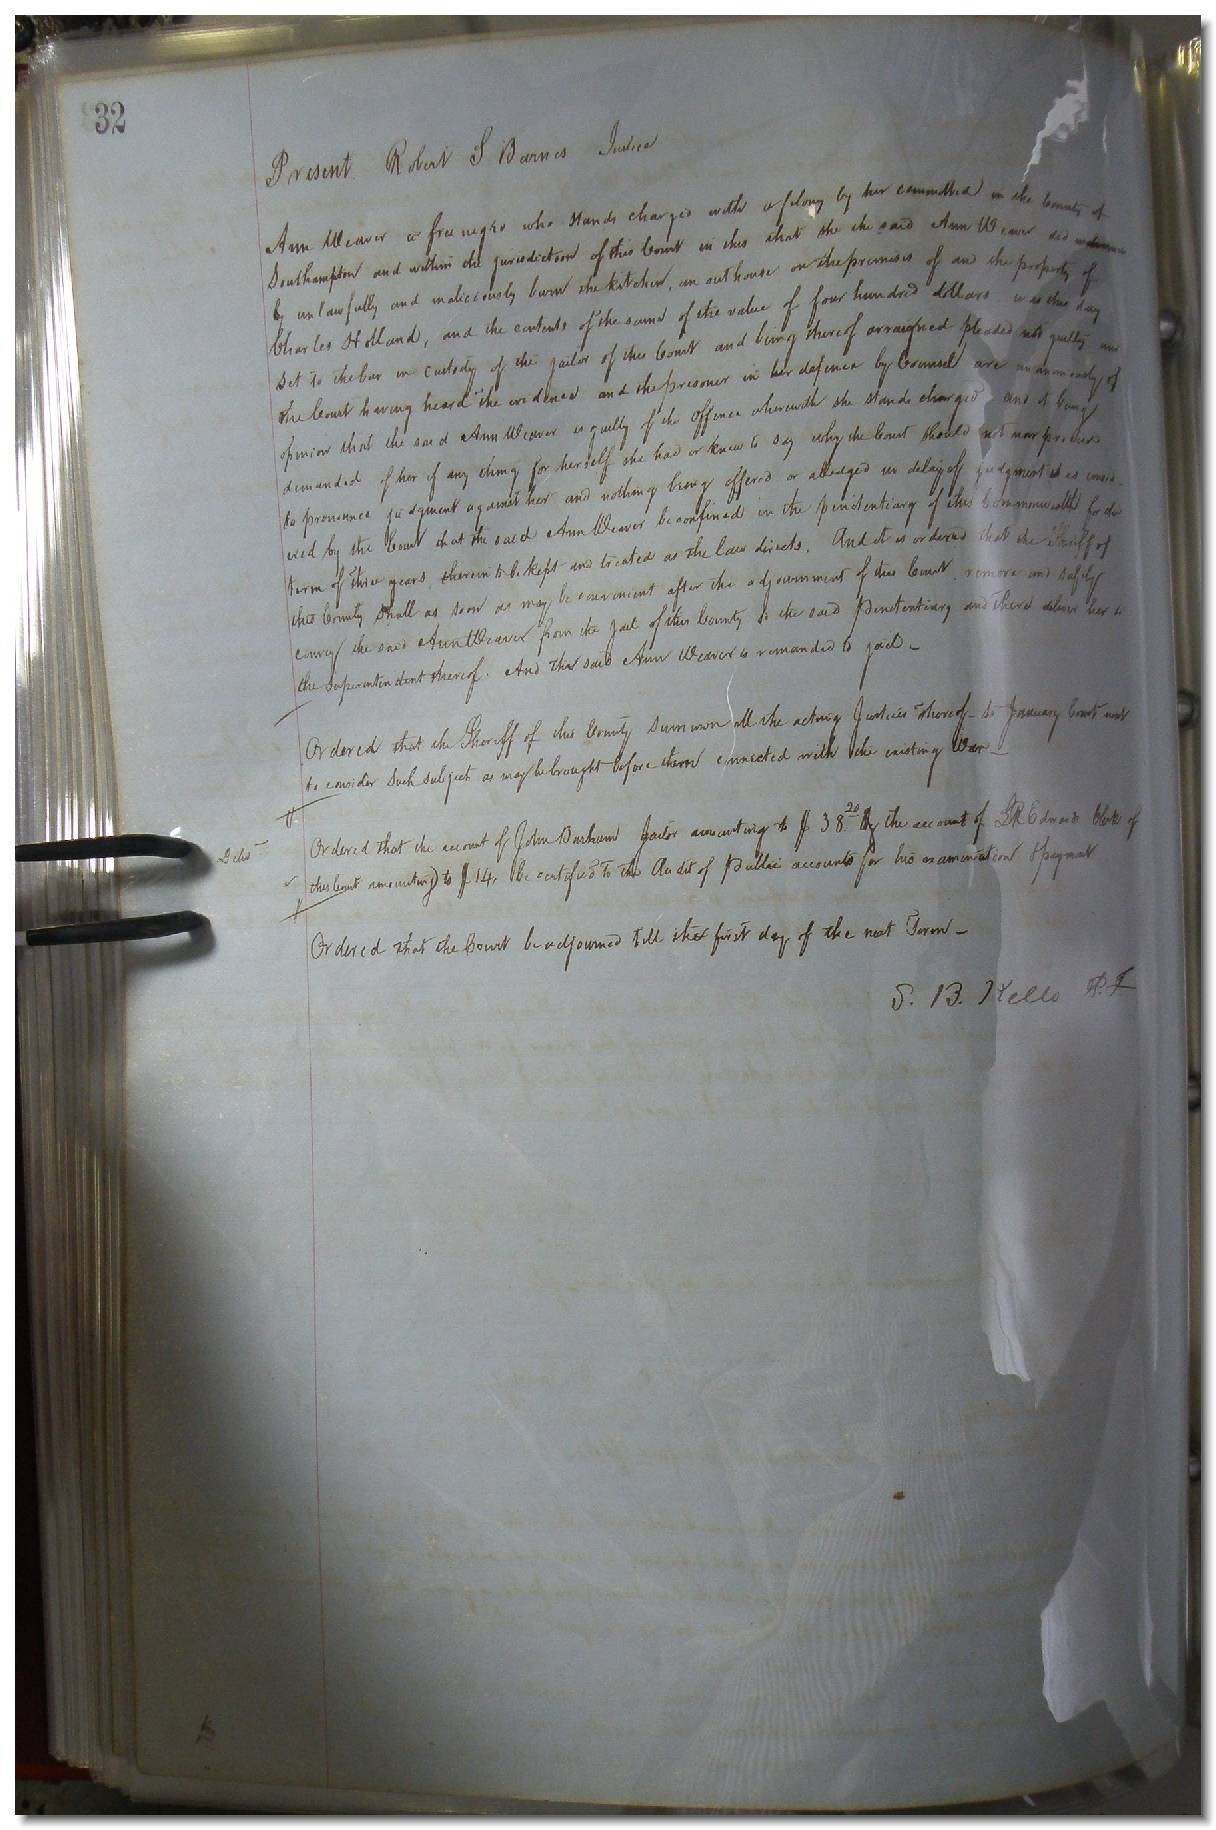 32
Present Robert S Barnes Justice
Ann Weaver a free negro who stands charged with a felony by her committed in the County of
Southampton and within the jurisdiction of this Court in this that she the said Ann Weaver did
by unlawfully and maliciously burn the kitchen, an outhouse on the premises of and the property of
Charles Holland, and the contents of the same of the value of four hundred dollars. is this day
set to the bar in custody of the jailor of this Court and being thereof arraigned pleaded not guilty and
the Court having heard the evidence and the prisoner in her defence by Counsel are unanimously of
opinion that the said Ann Weaver is guilty of the offence wherewith she stands charged and it being
demanded of her if any thing for herself she had or knew to say why the Court should not now proceed
to pronounce judgment against her and nothing being offered or alledged in delay of judgment it is consid-
ered by the Court that the said Ann Weaver be confined in the penitentiary of this Commonwealth for the
term of three years, therein to be kept and treated as the law directs. And it is ordered that the Sheriff of
this County shall as soon as may be convenient after the adjournment of this Court, remove and safely
convey the said Ann Weaver from the jail of this County to the said penitentiary and there deliver her to
the Superintendent thereof. And the said Ann Weaver is remanded to jail -
Ordered that the Sheriff of this County summon all the acting Justices thereof to January Court next
to consider such subject as may be brought before them connected with the existing War -
Ordered that the account of John Barham Jailor amounting to $ 38 20 the account of L R Edwards Clerk of
this Court amounting to $ 14, be certified to the Audit of Public accounts for his examination & payment
Ordered that the Court be adjourned till the first day of the next Term -
S. B. Kello P. J